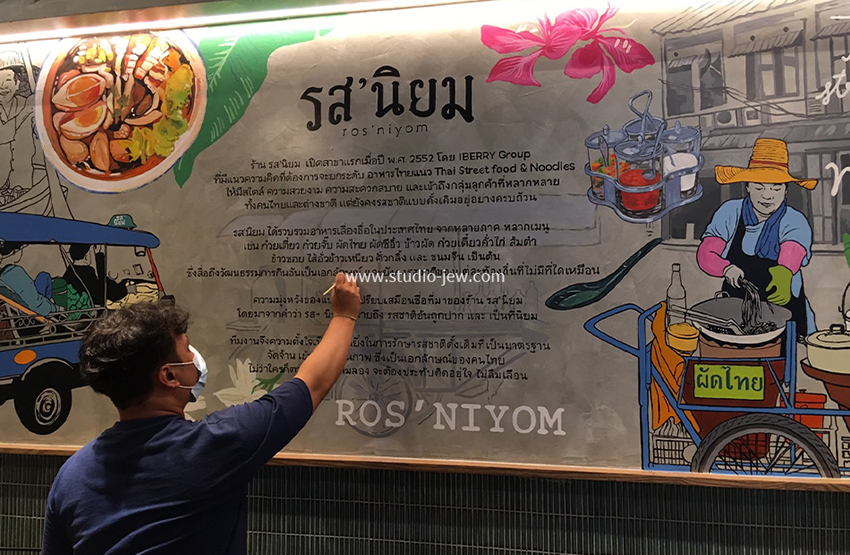 รส'นิยม
ros'niyom
ร้าน รส'นิยม เปิดสาขาแรกเมื่อปี พ.ศ. 2552 โดย IBERRY Group
ที่มีแนวความคิดที่ต้องการจะยกระดับ อาหารไทยแนว Thai Street food & Noodles
ให้มีสไตล์ ความสวยงาม ความสะดวกสบาย และเข้าถึงกลุ่มลูกค้าที่หลากหลาย
ทั้งคนไทยและต่างชาติ แต่ยังคงรสชาติแบบดั้งเดิมอยู่อย่างครบถ้วน
รสนิยม ได้รวบรวมอาหารเลื่องชื่อในประเทศไทย จากหลายภาค หลากเมนู
เช่น ก๋วยเตี๋ยว ก๋วยจั๊บ ผัดไทย ผัดซีอิ๊ว ข้าวผัด ก๋วยเตี๋ยวคั่วไก่ ส้มตำ
ข้าวซอย ไส้อั่วข้าวเหนียว คั่วกลิ้ง และ ขนมจีน เป็นต้น
ซึ่งสื่อถึงวัฒนธรรมการกินอันเป็นเอกลักษณ์ ท้องถิ่นที่ไม่มีที่ใดเหมือน
www.studio-jew.com
ความมุ่งหวังของ เปรียบเสมือนชื่อที่มาของร้าน รส'นิยม
โดยมาจากคำว่า รส+ ถึง รสชาติอันถูกปาก และ เป็นที่นิยม
ทีมงานจึงความตั้งใจ ในการรักษารสชาติดั้งเดิมที่เป็นมาตรฐาน
จัดจ้าน ซึ่งเป็นเอกลักษณ์ของคนไทย
ไม่ว่าใคร ลอง จะต้องประทับติดอยู่ใจ ไม่ลืมเลือน
ROS'NIYOM
ผัดไทย